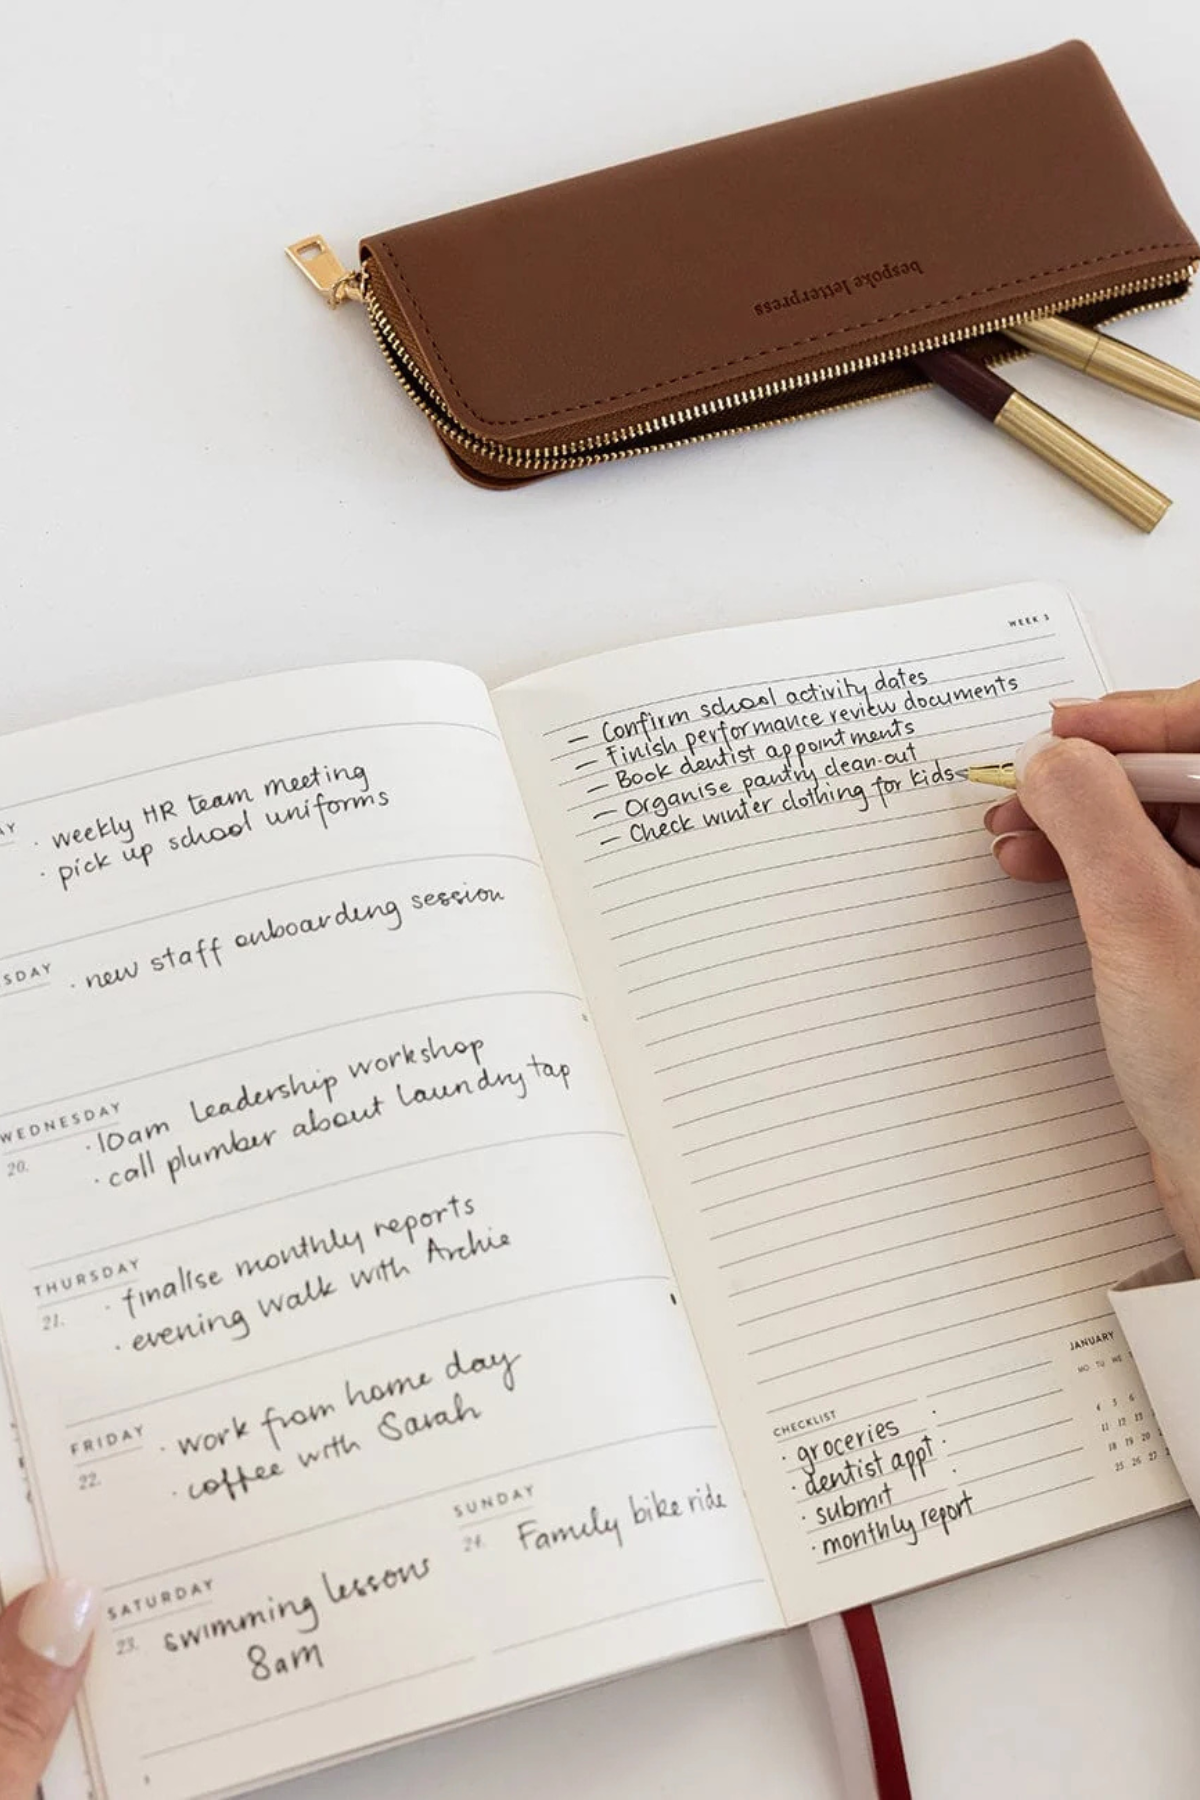 bespoke letterpress
AY
· weekly HR team meeting
· pick up school uniforms
SDAY
· new staff onboarding session
WEDNESDAY
20.
· 10am Leadership workshop
· call plumber about laundry tap
THURSDAY
21.
· finalise monthly reports
· evening walk with Archie
FRIDAY
22.
· work from home day
· coffee with Sarah
SATURDAY
23.
swimming lessons
8am
SUNDAY
24.
Family bike ride
WEEK 3
– Confirm school activity dates
– Finish performance review documents
– Book dentist appointments
– Organise pantry clean-out
– Check winter clothing for kids
CHECKLIST
· groceries
· dentist appt
· submit
· monthly report
JANUARY
MO TU WE
4 5 6
11 12 13
18 19 20
25 26 27